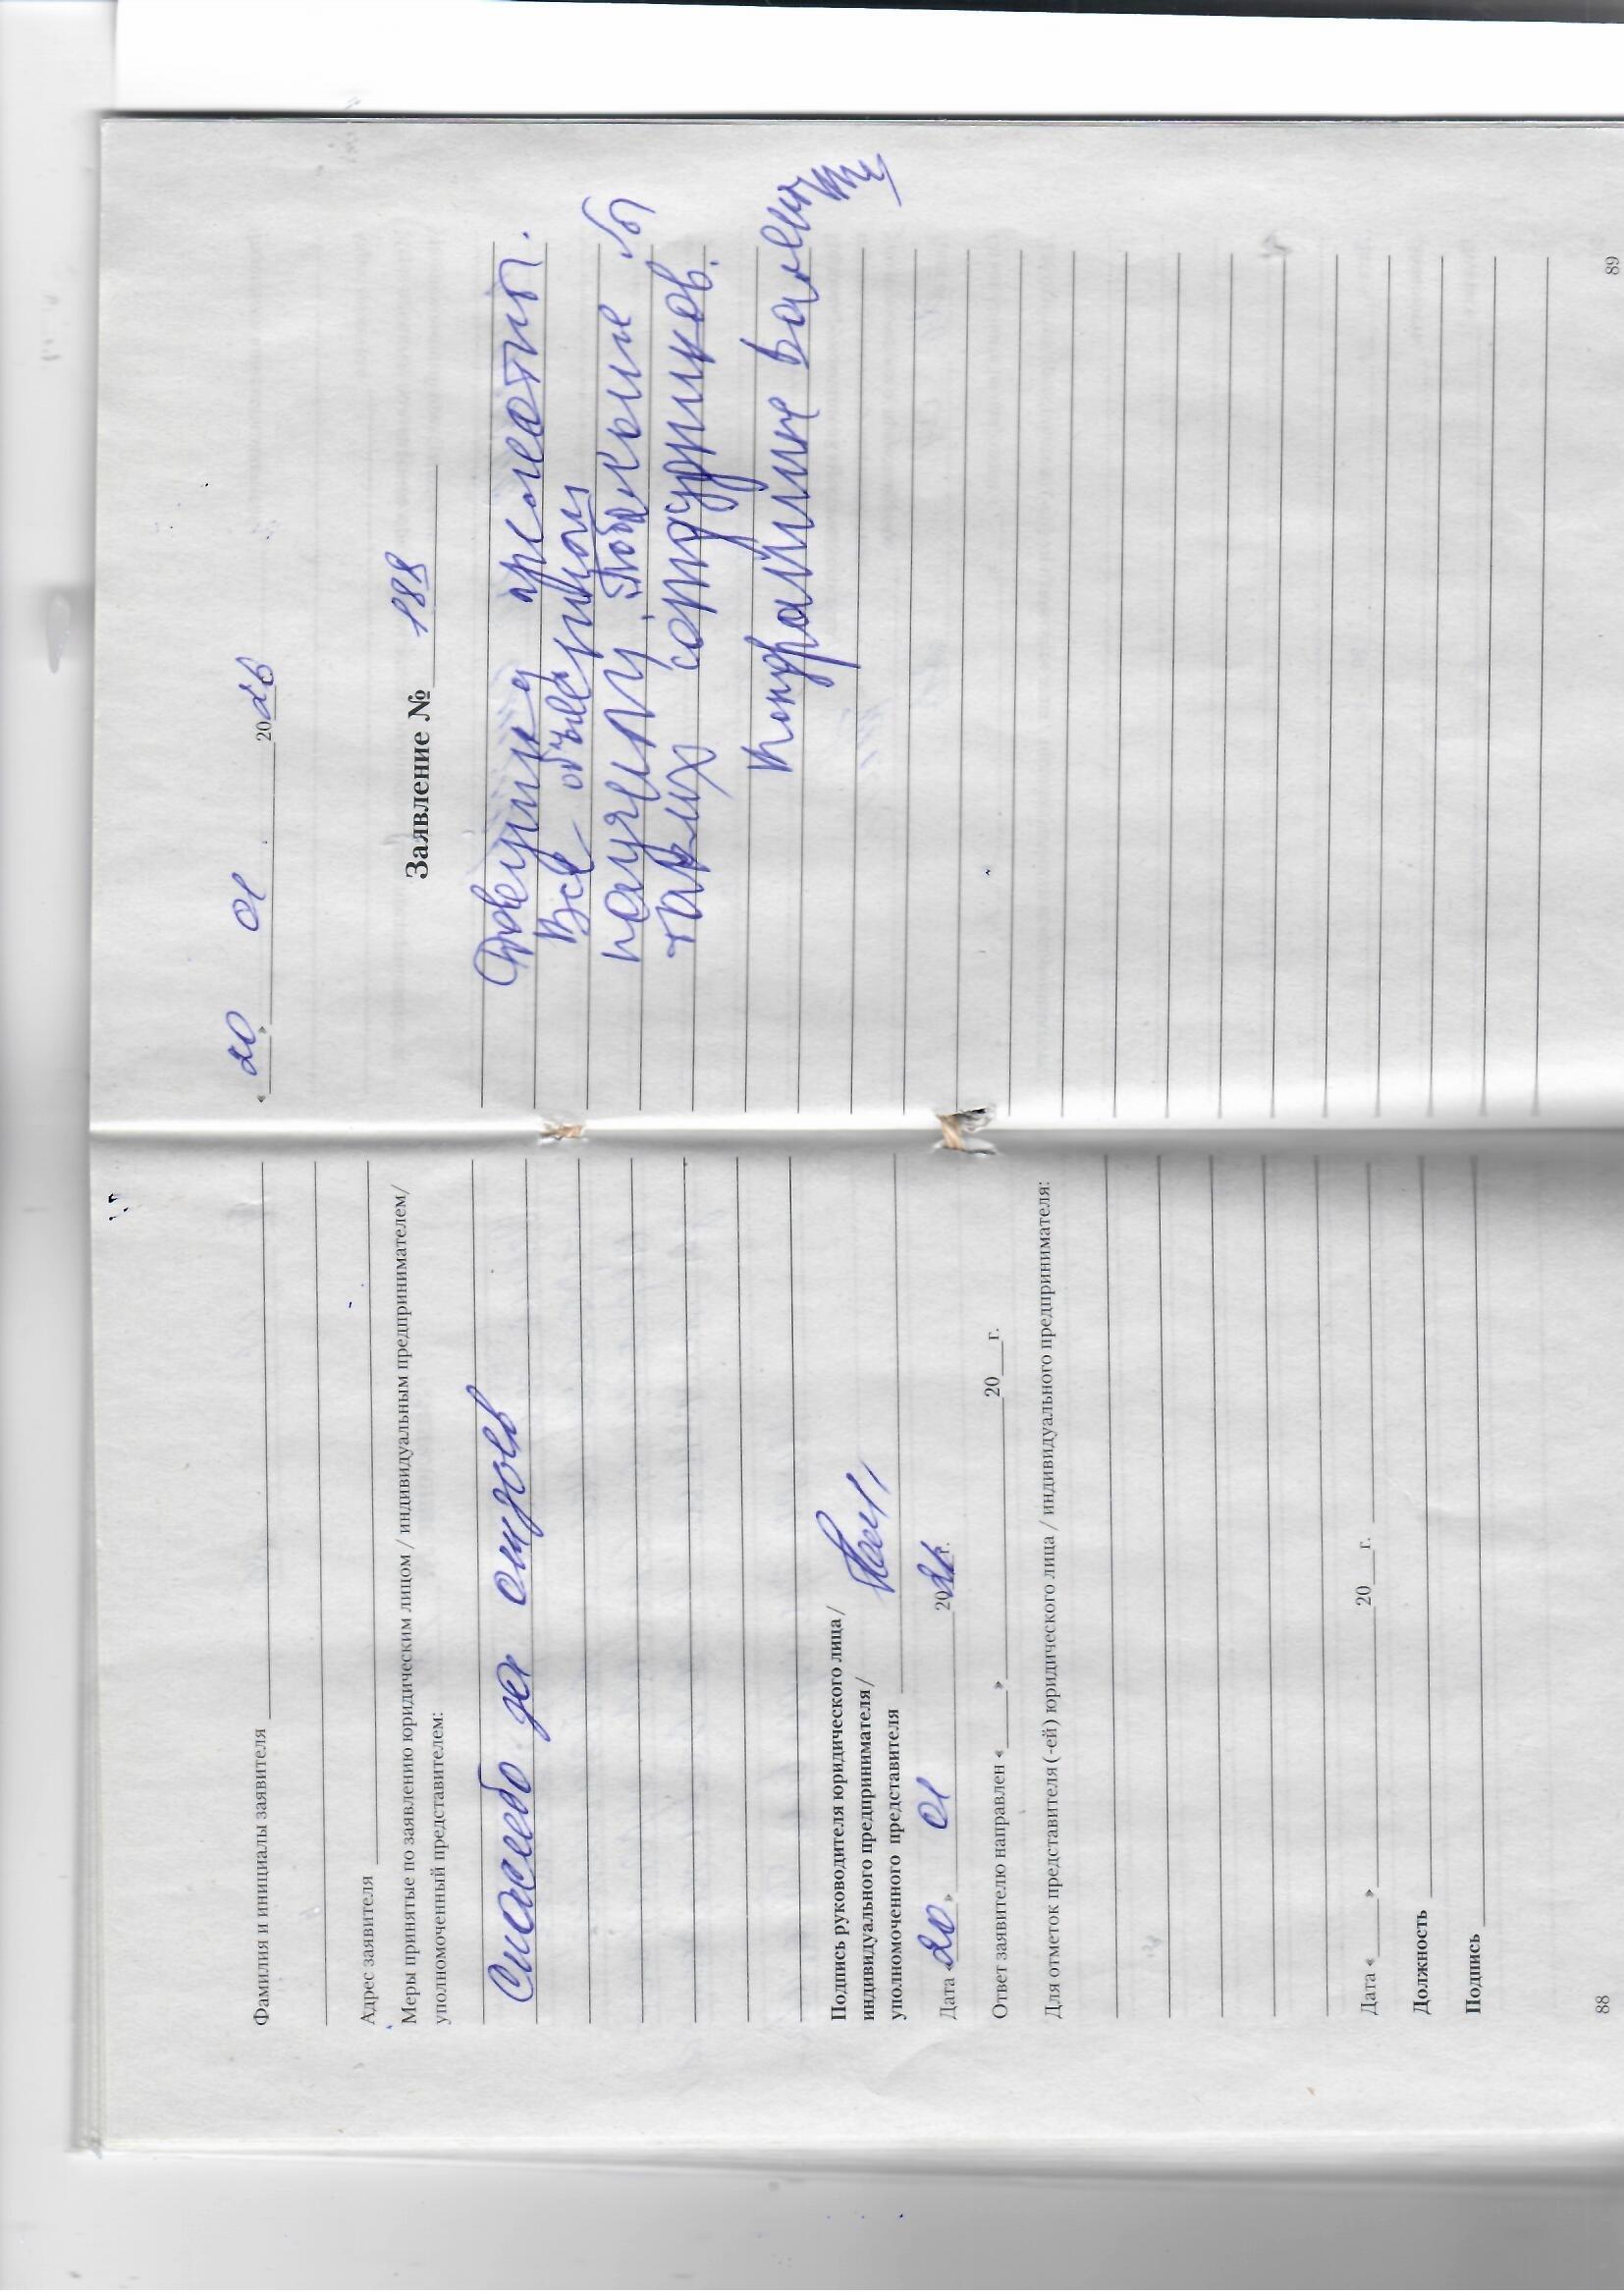 Фамилия и инициалы заявителя
Адрес заявителя
Меры принятые по заявлению юридическим лицом / индивидуальным предпринимателем/
уполномоченный представителем:
Спасибо за отзыв
Подпись руководителя юридического лица/
индивидуального предпринимателя/
уполномоченного представителя
Дата «20» 01 2026г.
Ответ заявителю направлен «___» 20___г.
Для отметок представителя (-ей) юридического лица / индивидуального предпринимателя:
Дата «___» 20___г.
Должность
Подпись
88
«20» 01. 2026
Заявление № 188
Девушка
Все
научили. Побольше бы
таких сотрудников.
89